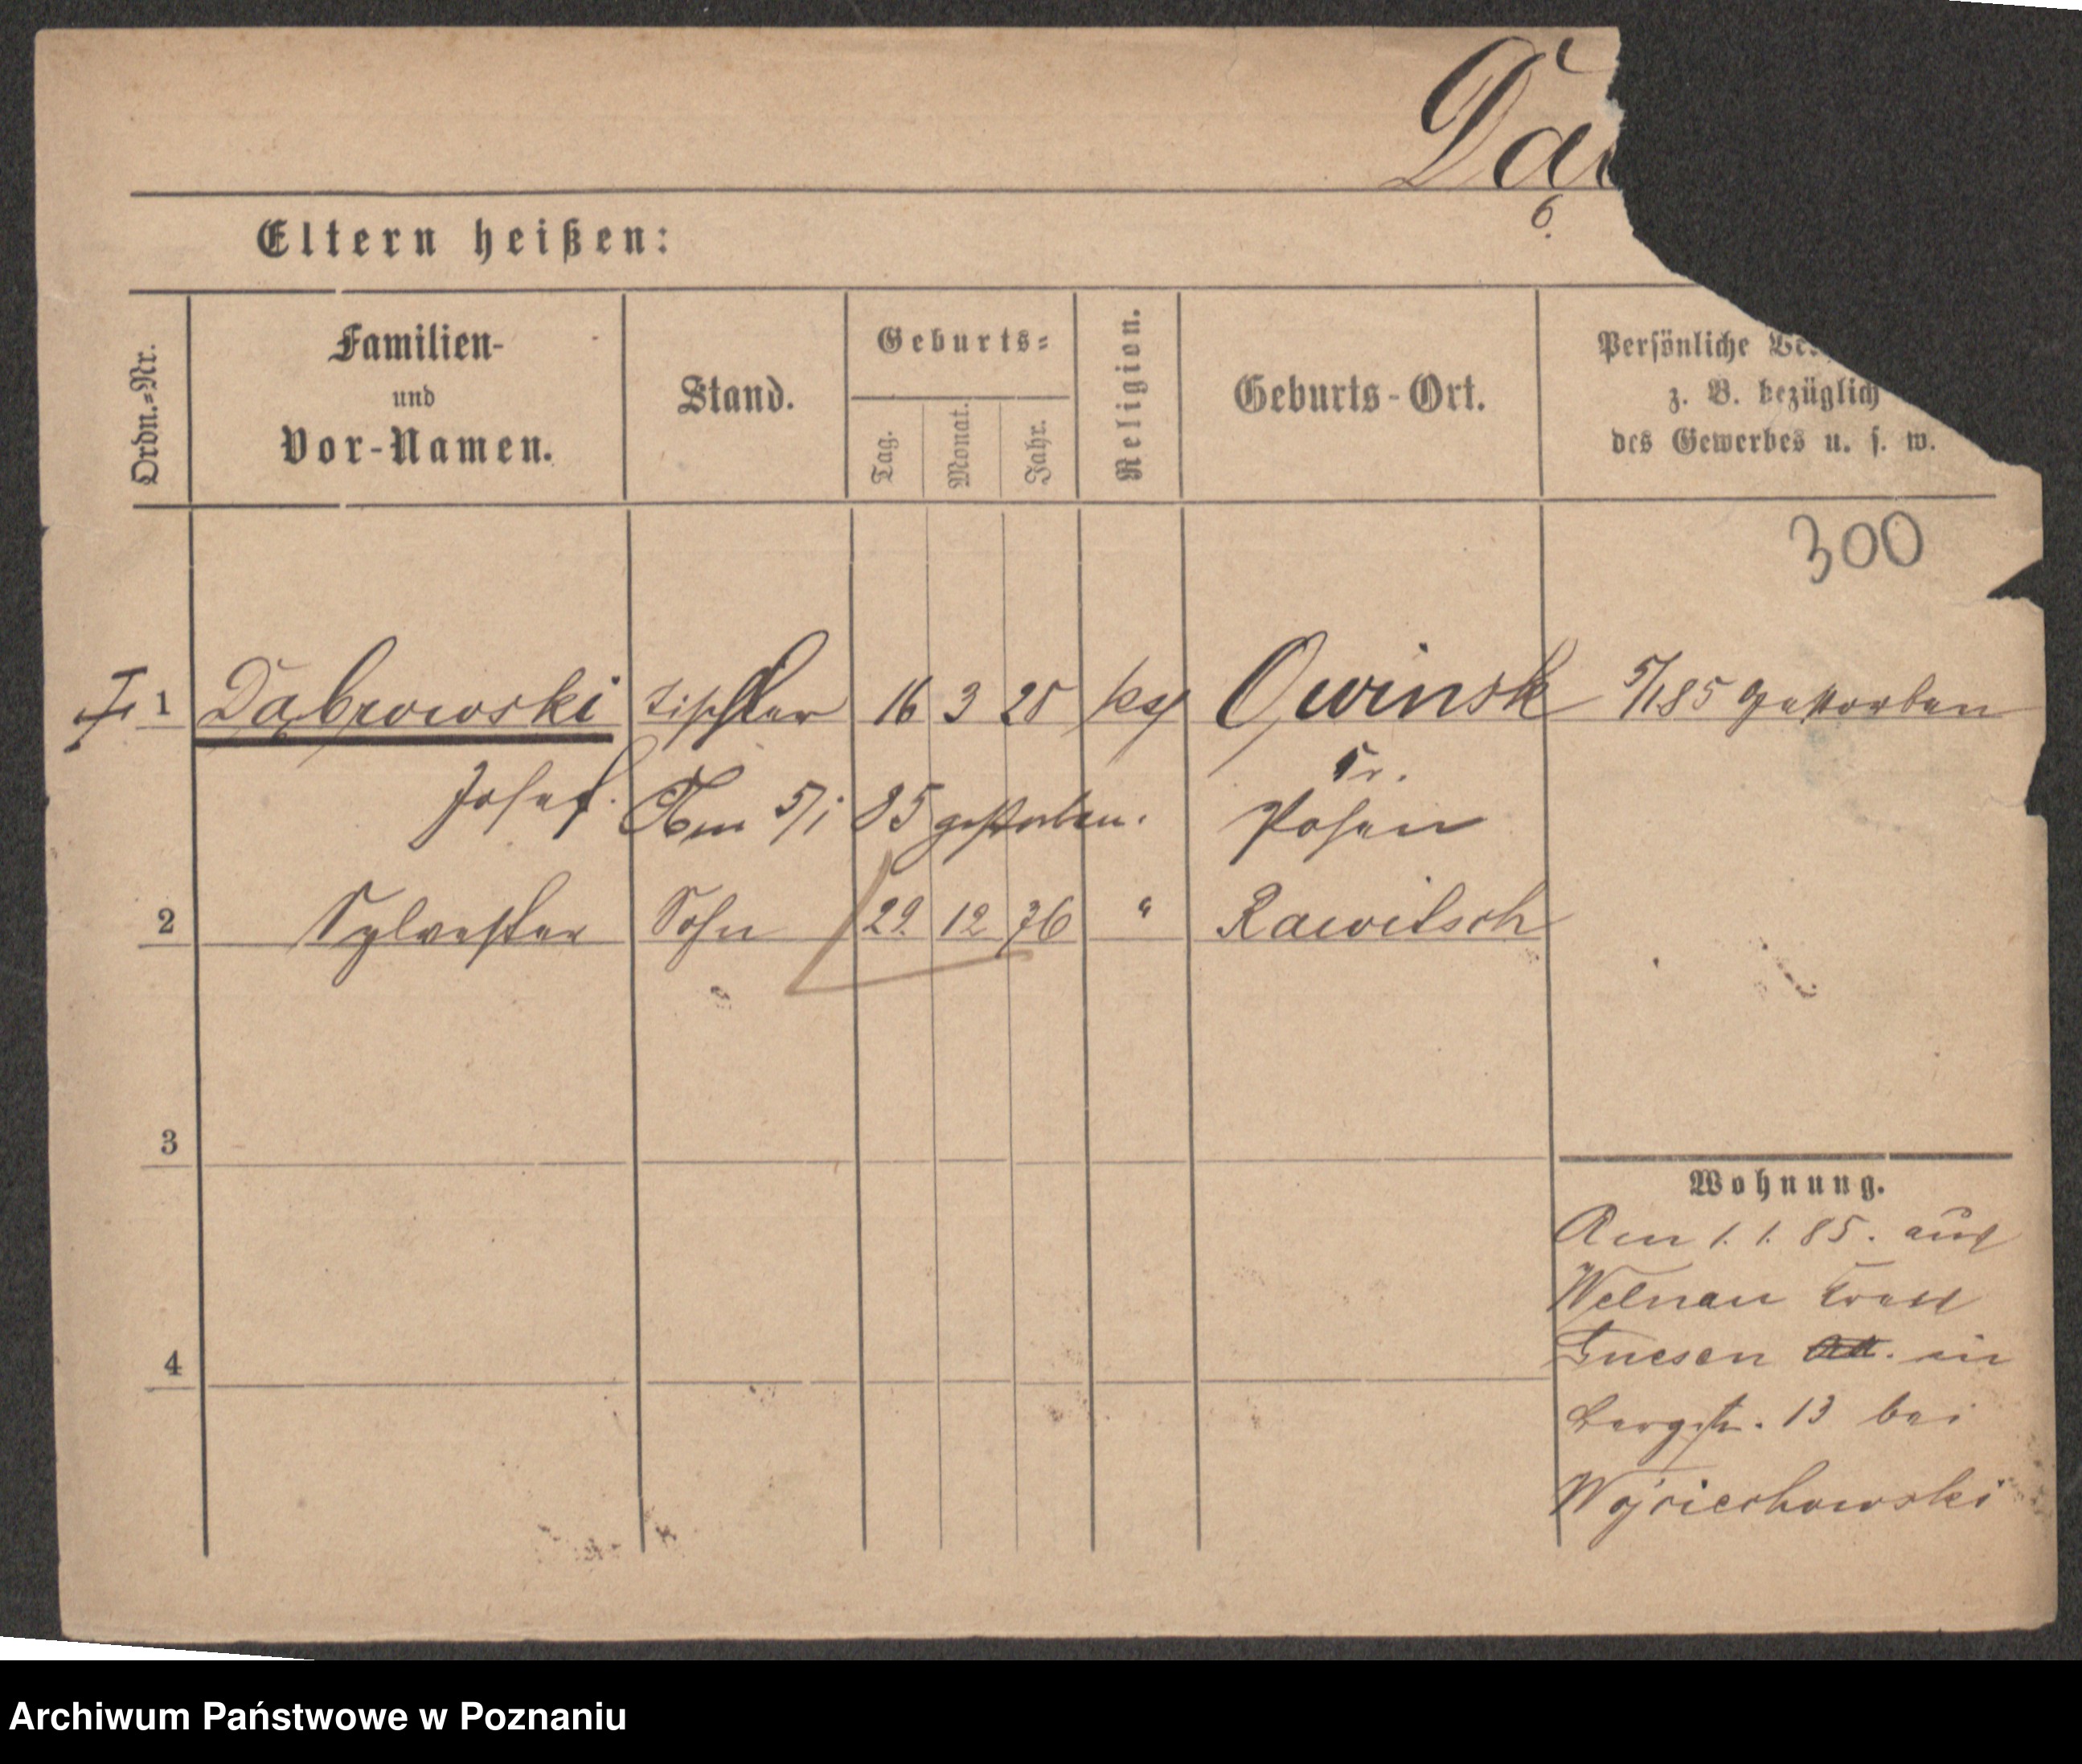 Da
6.
Eltern heißen:
Ordn.-Nr.
Familien-
und
Vor-Namen.
Stand.
Geburts-
Tag.
Monat.
Jahr.
Religion.
Geburts-Ort.
Persönliche
z. B. bezüglich
des Gewerbes u. s. w.
300
1 Dąbrowski Tischler 16 3 25 Owinsk 5/1 85 gestorben
Josef. Am 5/1 85 gestorben. Posen
2 Sylvester Sohn 29. 12 76 " Rawitsch
3
4
Wohnung.
Am 1. 1. 85. aus
Welnau Kreis
Gnesen in
Bergstr. 13 bei
Wojciechowski
Archiwum Państwowe w Poznaniu